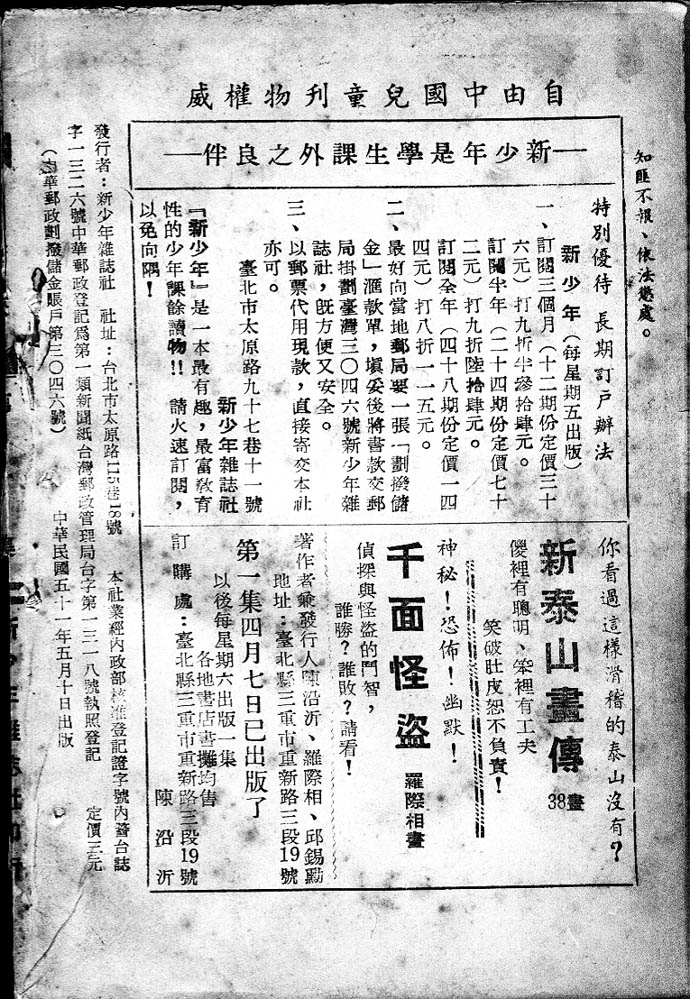 自由中國兒童刊物權威
—新少年是學生課外之良伴—
知匪不報、依法懲處。
特別優待 長期訂戶辦法
新少年(每星期五出版)
一、訂閱三個月(十二期份定價三十
六元)打九折半參拾肆元。
訂閱半年(二十四期份定價七十
二元)打九折陸拾肆元。
訂閱全年(四十八期份定價一四
四元)打八折一一五元。
二、最好向當地郵局要一張「劃撥儲
金」滙款單,填妥後將書款交郵
局掛劃臺灣三〇四六號新少年雜
誌社,旣方便又安全。
三、以郵票代用現款,直接寄交本社
亦可。
臺北市太原路九十七巷十一號
新少年雜誌社
『新少年』是一本最有趣,最富敎育
性的少年課餘讀物!!請火速訂閱,
以免向隅!
你看過這樣滑稽的泰山沒有?
新泰山畫傳 38畫
儍裡有聰明、笨裡有工夫
笑破肚皮恕不負責!
神秘!恐怖!幽默!
千面怪盜 羅際相畫
偵探與怪盜的鬥智,
誰勝?誰敗?請看!
著作者兼發行人陳沿沂、羅際相、邱錫勳
地址:臺北縣三重市重新路三段19號
第一集四月七日已出版了
以後每星期六出版一集
各地書店書攤均售
訂購處:臺北縣三重市重新路三段19號
陳沿沂
發行者:新少年雜誌社 社址:台北市太原路115巷18號 本社業經內政部核准登記證字號內警台誌
字一三二六號中華郵政登記爲第一類新聞紙台灣郵政管理局台字第一三一八號執照登記 定價三元
(中華郵政劃撥儲金賬戶第三〇四六號) 中華民國五十一年五月十日出版